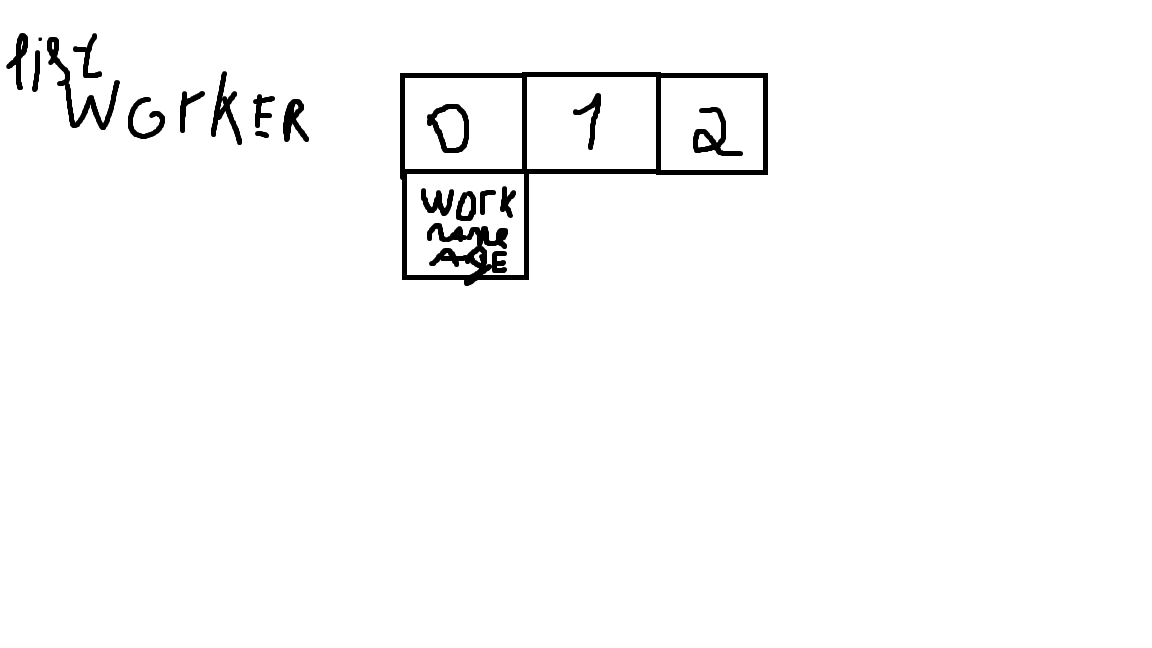 list
WorkER
0 1 2
work
name
AGE